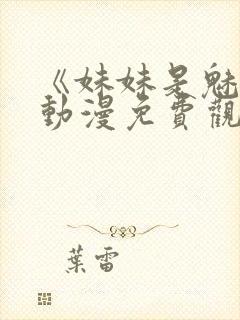 《妹妹是魅
動漫免費觀
葉雷